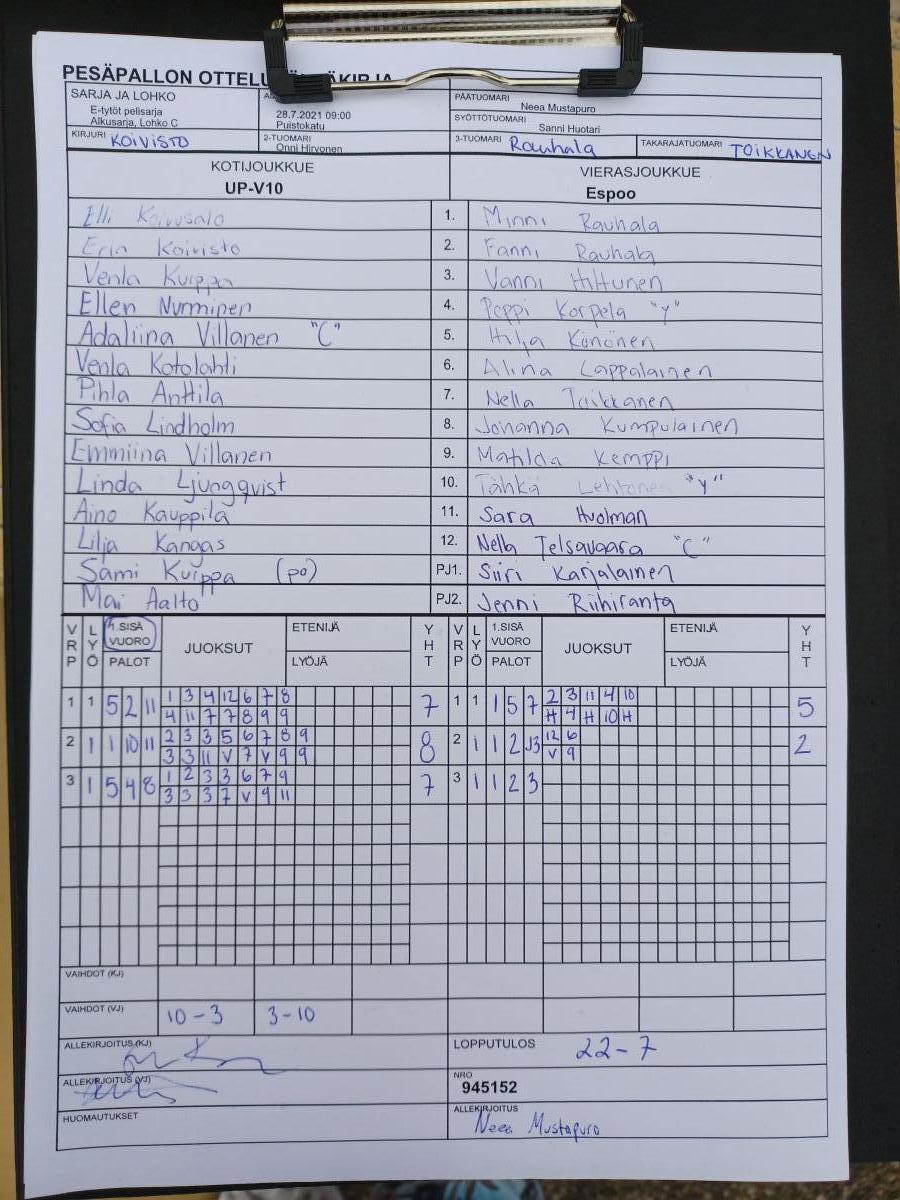 PESÄPALLON OTTELU
SARJA JA LOHKO
E-tytöt pelisarja
Alkusarja, Lohko C
28.7.2021 09:00
Puistokatu
PÄÄTUOMARI
Neea Mustapuro
SYÖTTÖTUOMARI
Sanni Huotari
KIRJURI KOIVISTO
2-TUOMARI
Onni Hirvonen
3-TUOMARI Rauhala
TAKARAJATUOMARI TOIKKANEN
KOTIJOUKKUE
UP-V10
VIERASJOUKKUE
Espoo
Elli Koivusalo 1. Minni Rauhala
Erin Koivisto 2. Fanni Rauhala
Venla Kuippa 3. Vanni Hiltunen
Ellen Nurminen 4. Peppi Korpela "Y"
Adaliina Villanen "C" 5. Hilja Könönen
Venla Kotolahti 6. Alina Lappalainen
Pihla Anttila 7. Nella Toikkanen
Sofia Lindholm 8. Johanna Kumpulainen
Emmiina Villanen 9. Matilda Kemppi
Linda Ljungqvist 10. Tähkä Lehtonen "Y"
Aino Kauppila 11. Sara Huolman
Lilja Kangas 12. Nella Telsavaara "C"
Sami Kuippa (po) PJ1. Siiri Karjalainen
Mai Aalto PJ2. Jenni Riihiranta
VRP LYÖ 1.SISÄ VUORO PALOT JUOKSUT ETENIJÄ LYÖJÄ YHT VRP LYÖ 1.SISÄ VUORO PALOT JUOKSUT ETENIJÄ LYÖJÄ YHT
1 1 5 2 11 1 3 4 12 6 7 8 7 1 1 1 5 7 2 3 11 4 10 5
4 11 7 7 8 9 9 H 4 H 10 H
2 1 1 10 11 2 3 3 5 6 7 8 9 8 2 1 1 2 J3 12 6 2
3 3 11 V 7 V 9 9 V 9
3 1 5 4 8 1 2 3 3 6 7 9 7 3 1 1 2 3
3 3 3 7 V 9 11
VAIHDOT (KJ)
VAIHDOT (VJ) 10-3 3-10
ALLEKIRJOITUS (KJ)
LOPPUTULOS 22-7
ALLEKIRJOITUS (VJ)
NRO
945152
HUOMAUTUKSET
ALLEKIRJOITUS
Neea Mustapuro